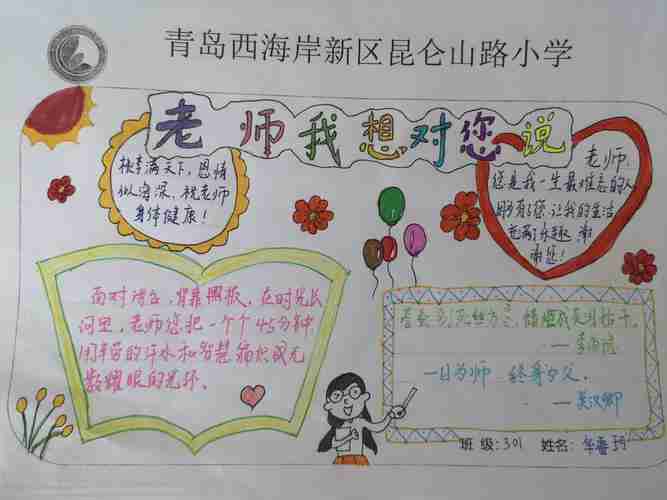 青岛西海岸新区昆仑山路小学
老师我想对您说
桃李满天下，恩情
似海深，祝老师
身体健康！
老师，
您是我一生最难忘的人
因为有了您，让我的生活
充满了乐趣，谢
谢您！
面对讲台，背靠黑板，在时光长
河里，老师您把一个个45分钟
用辛苦的汗水和智慧编织成无
数耀眼的光环。
春蚕到死丝方尽，蜡炬成灰泪始干。
——李商隐
一日为师 终身为父。
——关汉卿
班级：301 姓名：